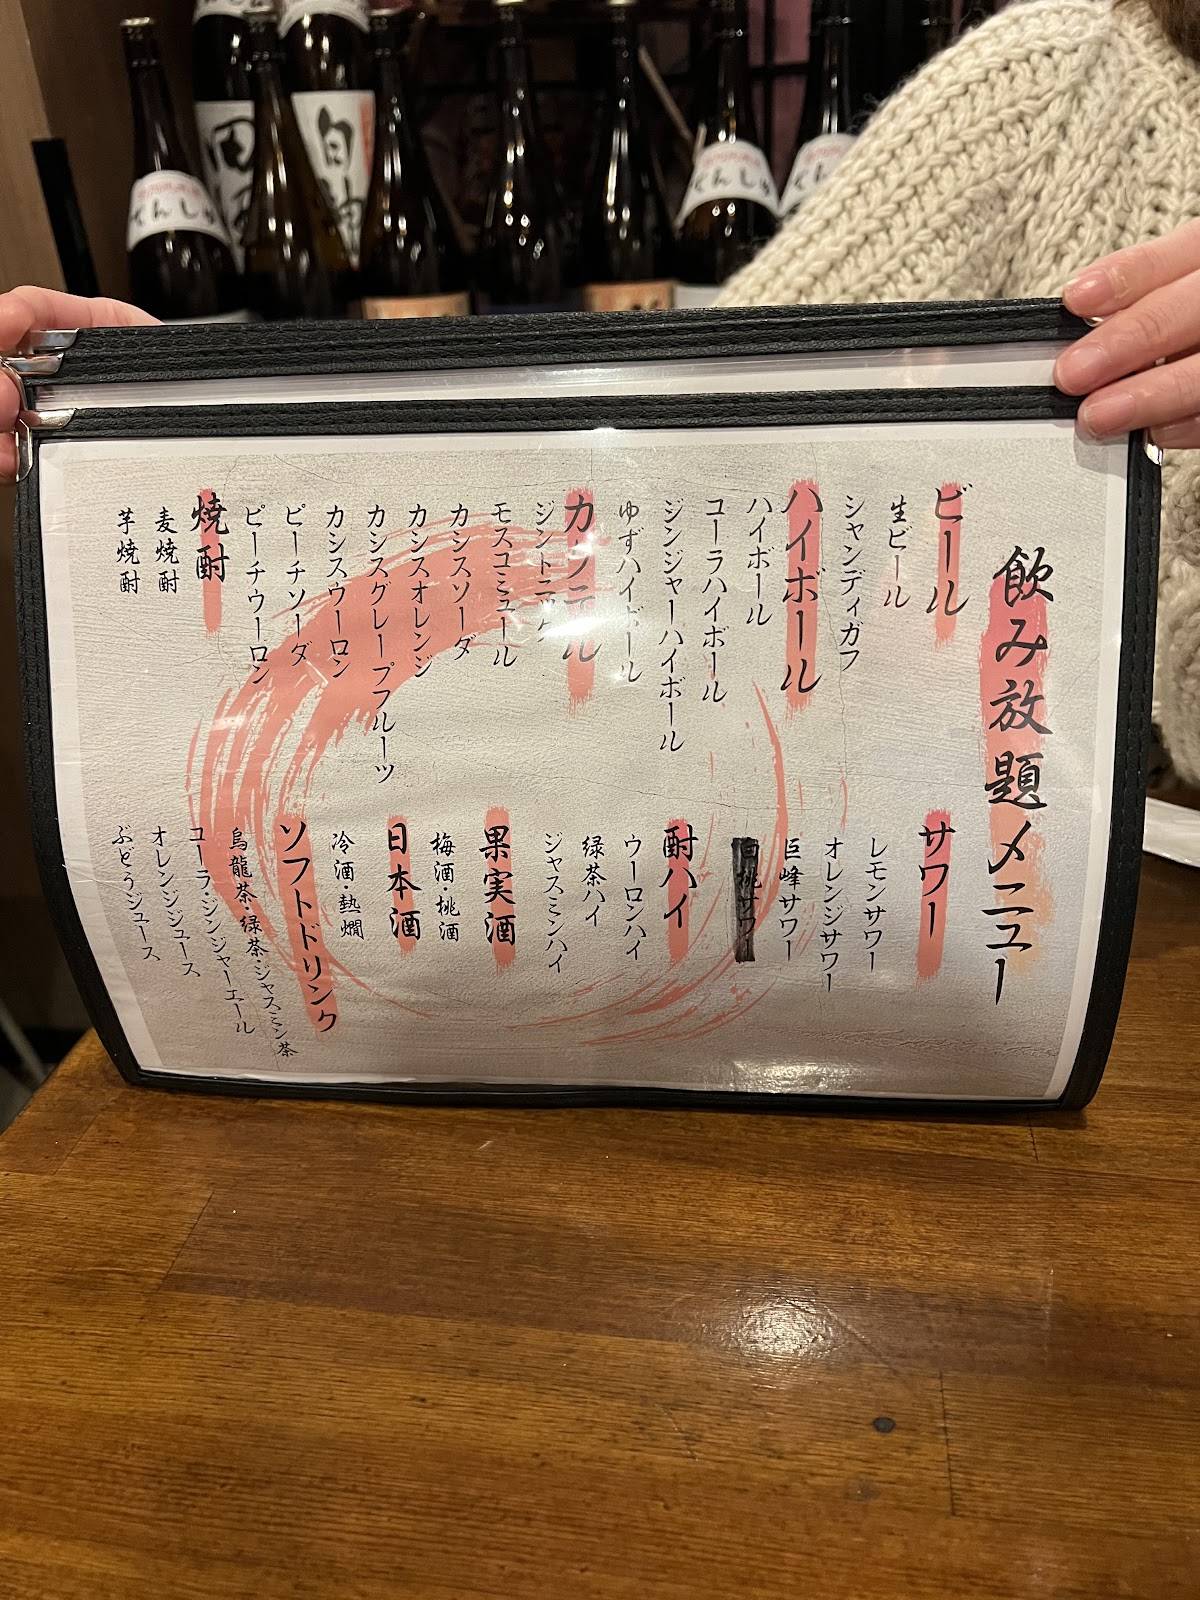 飲み放題メニュー
ビール
生ビール
シャンディガフ
ハイボール
ハイボール
コーラハイボール
ジンジャーハイボール
ゆずハイボール
カクテル
ジントニック
モスコミュール
カシスソーダ
カシスオレンジ
カシスグレープフルーツ
カシスウーロン
ピーチソーダ
ピーチウーロン
焼酎
麦焼酎
芋焼酎
サワー
レモンサワー
オレンジサワー
巨峰サワー
白桃サワー
酎ハイ
ウーロンハイ
緑茶ハイ
ジャスミンハイ
果実酒
梅酒・桃酒
日本酒
冷酒・熱燗
ソフトドリンク
烏龍茶・緑茶・ジャスミン茶
コーラ・ジンジャーエール
オレンジジュース
ぶどうジュース